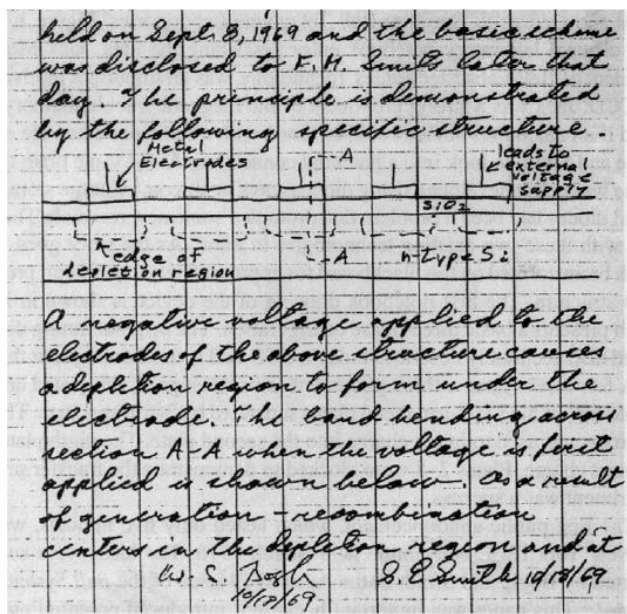 held on Sept. 8, 1969 and the basic scheme
was disclosed to F. M. Smits later that
day. The principle is demonstrated
by the following specific structure.
Metal
Electrodes
A
leads to
external
voltage
supply
SiO2
edge of
depletion region
A
n-type Si
A negative voltage applied to the
electrodes of the above structure causes
a depletion region to form under the
electrode. The band bending across
section A-A when the voltage is first
applied is shown below. As a result
of generation - recombination
centers in the depletion region and at
W. S. Boyle
10/17/69
G. E. Smith 10/18/69